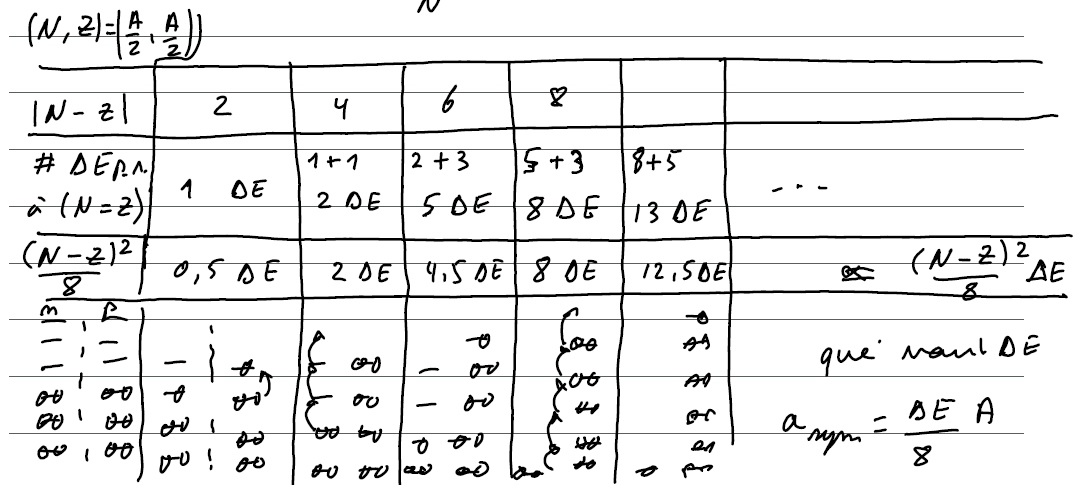 N
(N, Z)=(A/2, A/2))
|N - Z| 2 4 6 8
# ΔE p.r. à (N=Z) 1 ΔE 1+1 2 ΔE 2+3 5 ΔE 5+3 8 ΔE 8+5 13 ΔE ...
(N-Z)²/8 0,5 ΔE 2 ΔE 4,5 ΔE 8 ΔE 12,5 ΔE (N-Z)²/8 ΔE
n p
que vaut ΔE
a sym = ΔE/8 A